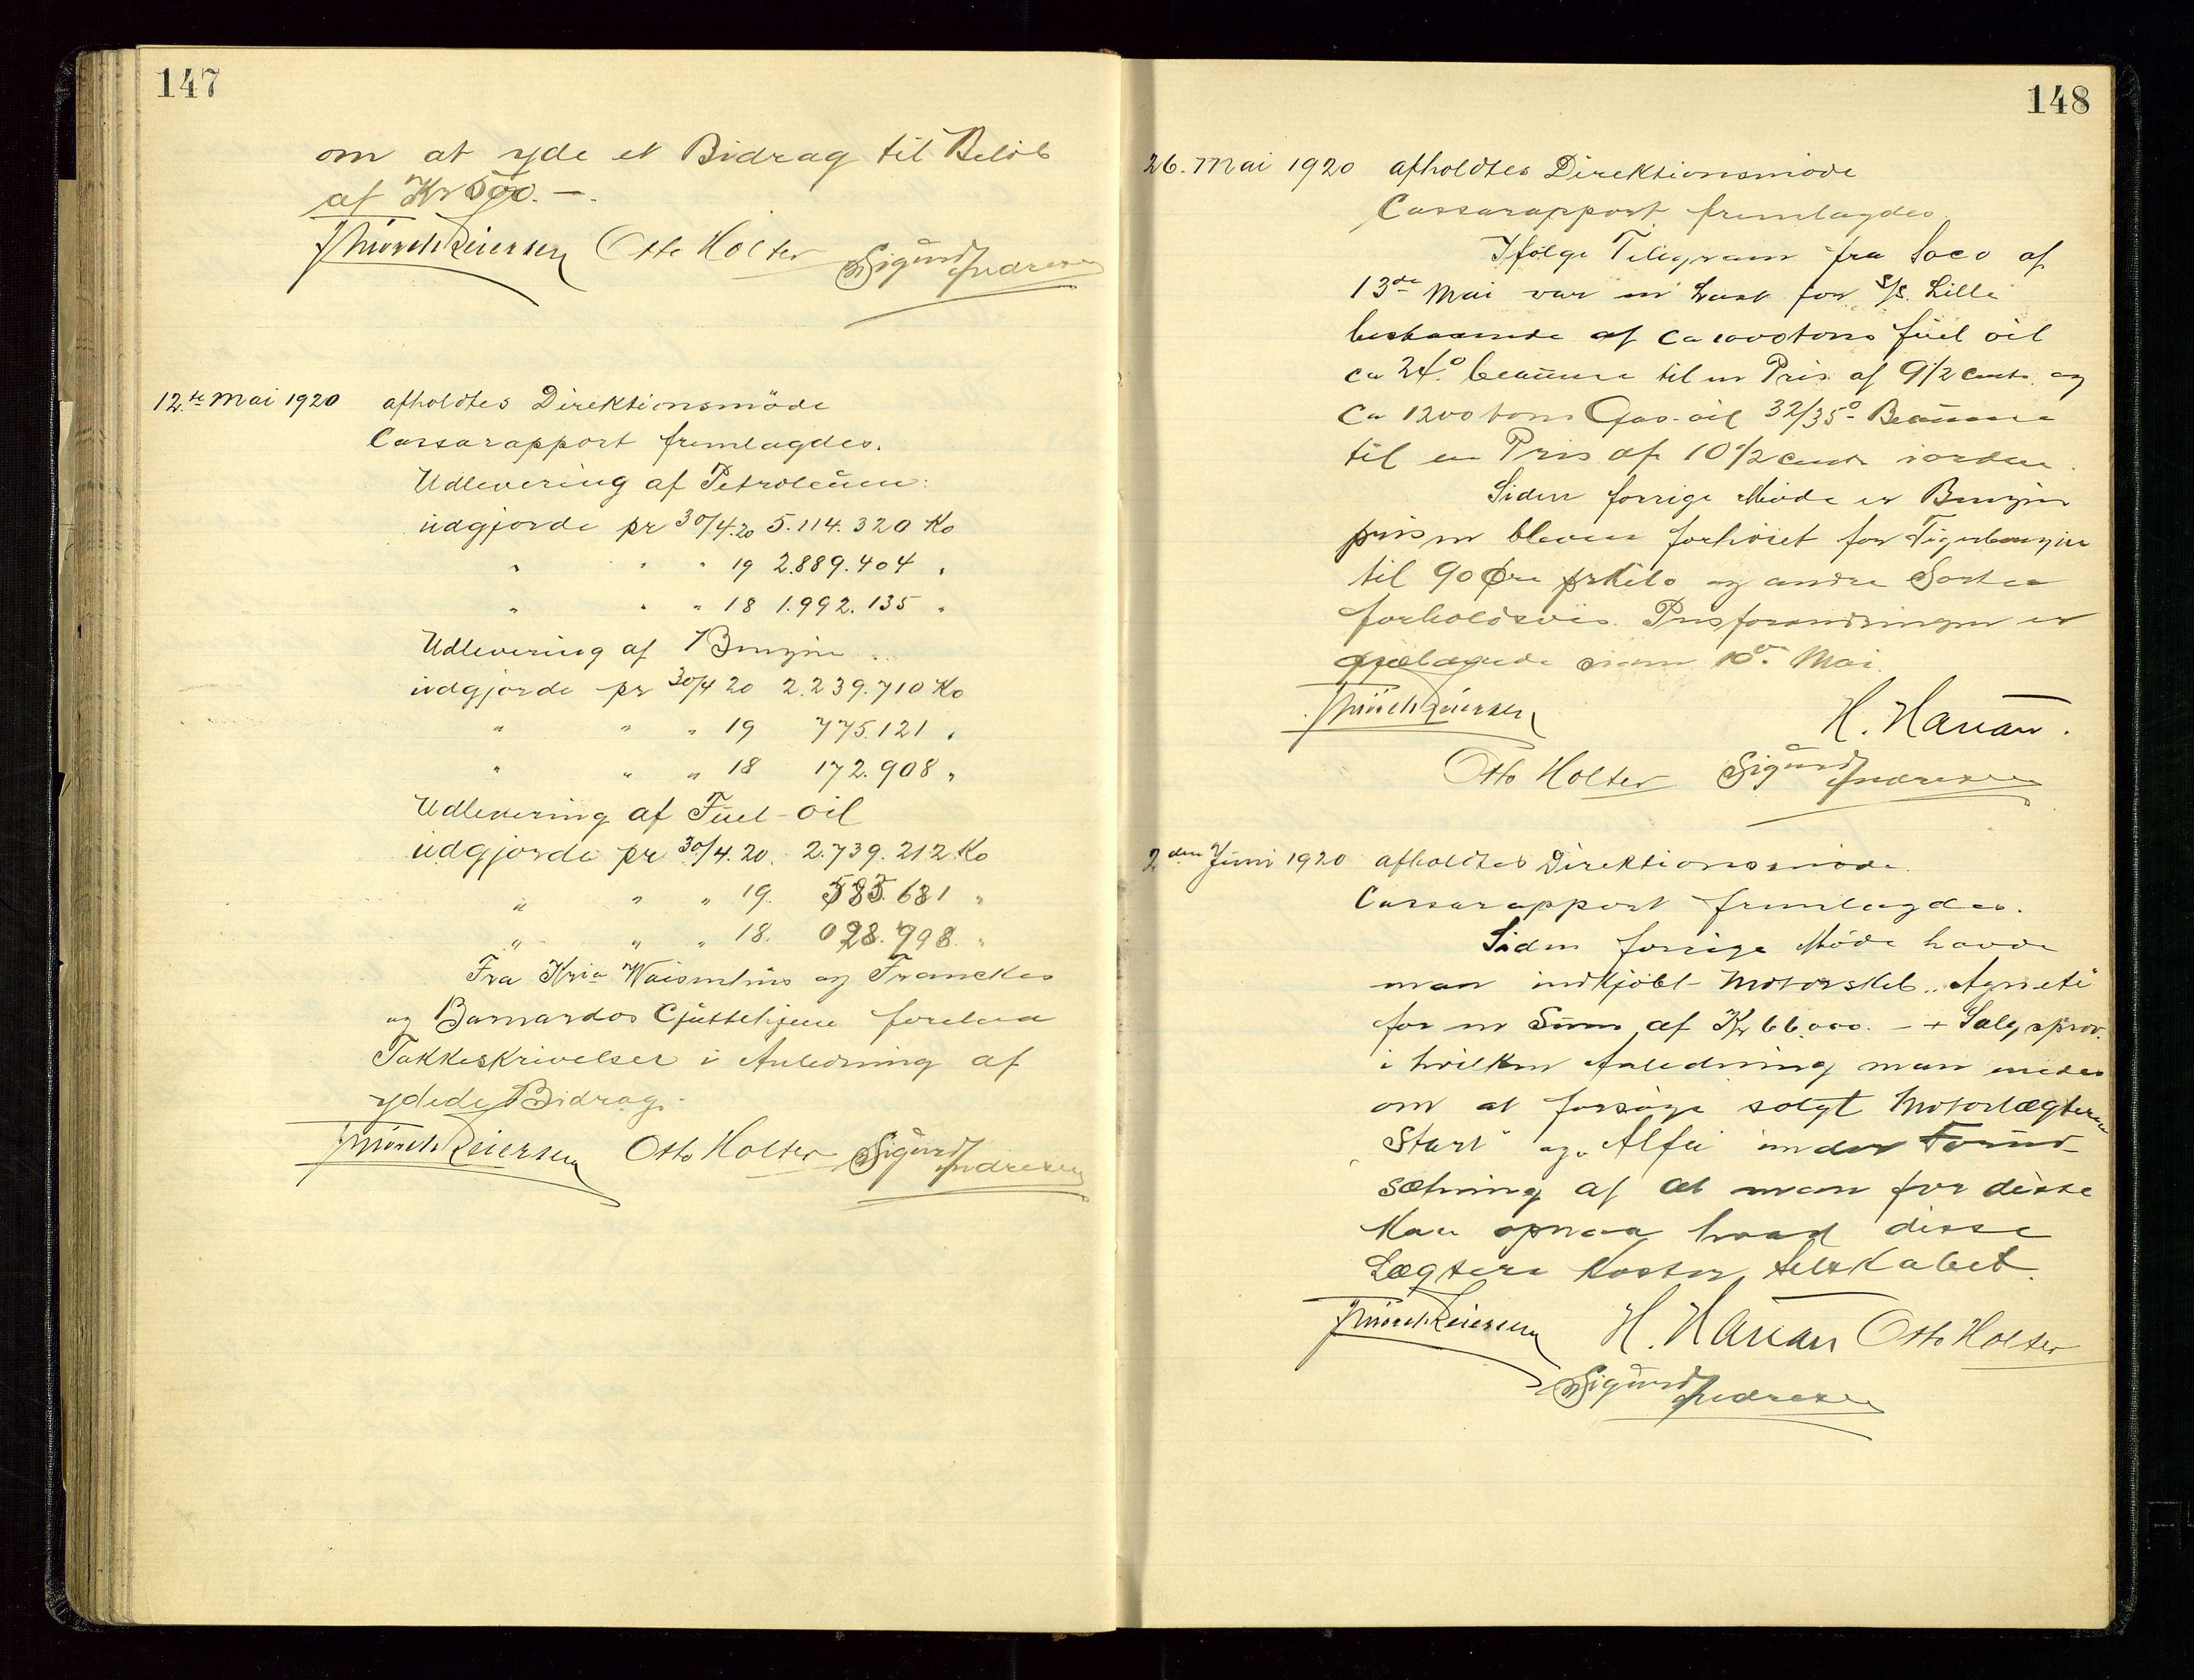 147
om at yde et Bidrag til Beløb
af Kr 500.—.
Otto Holter Sigurd Andresen
12.te Mai 1920 afholdtes Direktionsmöde
Cassarapport fremlagdes.
Udlevering af Petroleum:
udgjorde pr 30/4.20 5.114.320 Ko
" " " 19 2.889.404 "
" " " 18 1.992.135 "
Udlevering af Benzin
udgjorde pr 30/4 20 2.239.710 Ko
" " " 19 775.121 "
" " " 18 172.908 "
Udlevering af Fuel-oil
udgjorde pr 30/4.20. 2.739.212 Ko
" " " 19. 585.681 "
" " " 18. 028.798 "
Fra Kria og Franckes
og Barnardos forelaa
Takkeskrivelser i Anledning af
ydede Bidrag.
Otto Holter Sigurd Andresen
148
26. Mai 1920 afholdtes Direktionsmöde
Cassarapport fremlagdes
Ifølge Telegram fra Soco af
13de Mai var en Last for S/S. Lilli
bestaaende af ca 1000 tons fuel oil
ca 24.° beaume til en Pris af 9 1/2 cents og
ca 1200 tons Gas-oil 32/35° Beaume
til en Pris af 10 1/2 cents i orden.
Siden forrige Möde er Benzin
prisen bleven forhöiet for Tigerbenzin
til 90 Øre pr Kilo og andre Sorter
forholdsvis. Prisforandringen er
gjældende siden 10de Mai.
H. Harian.
Otto Holter Sigurd Andresen
2den Juni 1920 afholdtes Direktionsmöde.
Cassarapport fremlagdes.
Siden forrige Möde havde
man indkjöbt Motorskib „Agnete"
for en Sum af Kr 66.000.— + Salgsprov.
i hvilken Anledning man enedes
om at forsöge solgt Motorlægterne
„Start" og „Alfa" under Forud-
sætning af at man for disse
kan opnaa hvad disse
Lægtere koster selskabet.
H. Harian Otto Holter
Sigurd Andresen